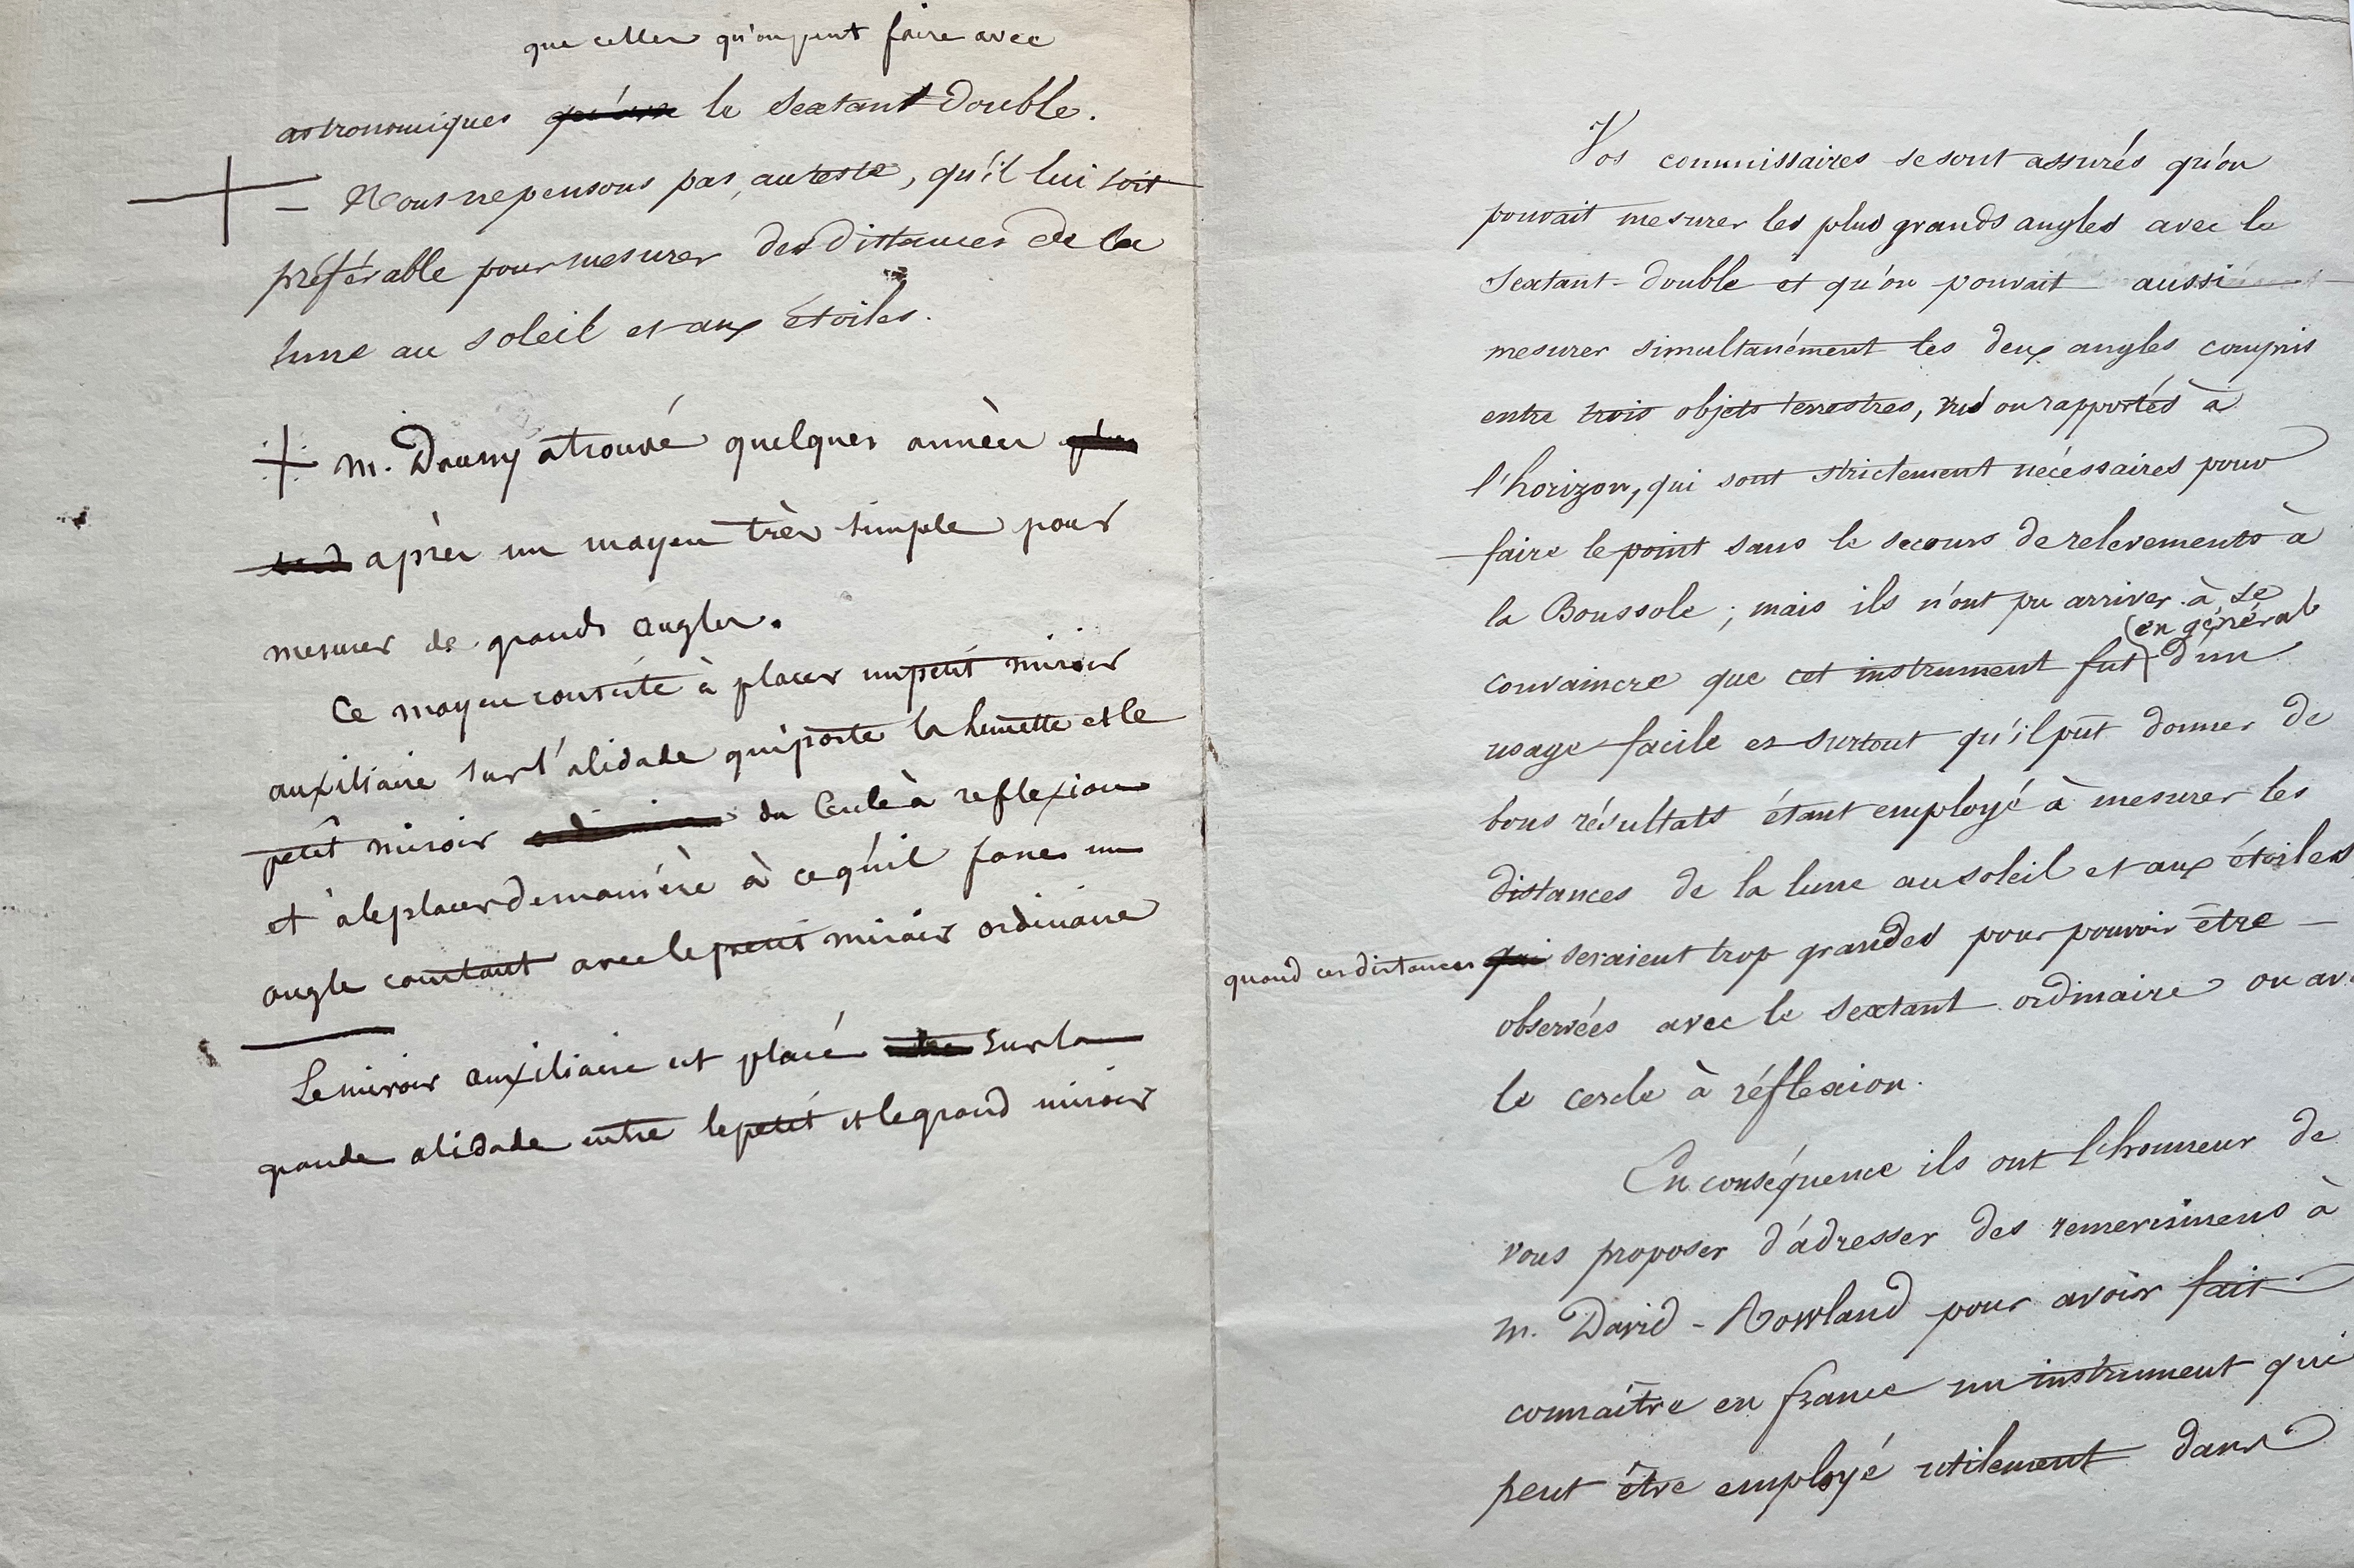 que celles qu'on peut faire avec
astronomiques qu'avec le sextant double.
Nous ne pensons pas, au reste, qu'il lui soit
préférable pour mesurer des distances de la
lune au soleil et aux étoiles.
M. Daussy a trouvé quelques années plus
tard après un moyen très simple pour
mesurer de grands angles.
Ce moyen consiste à placer un petit miroir
auxiliaire sur l'alidade qui porte la lunette et le
petit miroir du Cercle à reflexion
et à le placer de manière à ce qu'il fasse un
angle constant avec le petit miroir ordinaire
Le miroir auxiliaire est placé entre sur la
grande alidade entre le petit et le grand miroir
Vos commissaires se sont assurés qu'on
pouvait mesurer les plus grands angles avec le
Sextant-double et qu'on pouvait aussi
mesurer simultanément les deux angles compris
entre trois objets terrestres, vus ou rapportés à
l'horizon, qui sont strictement nécessaires pour
faire le point sans le secours de relevements à
la Boussole ; mais ils n'ont pu arriver à se
(en général
convaincre que cet instrument fut) d'un
usage facile et surtout qu'il pût donner de
bons résultats étant employé à mesurer les
distances de la lune au soleil et aux étoiles
quand ces distances qui seraient trop grandes pour pouvoir être
observées avec le sextant ordinaire ou av
le cercle à réflexion.
En conséquence ils ont l'honneur de
vous proposer d'adresser des remercimens à
M. David-Rowland pour avoir fait
connaître en france un instrument qui
peut être employé utilement dans